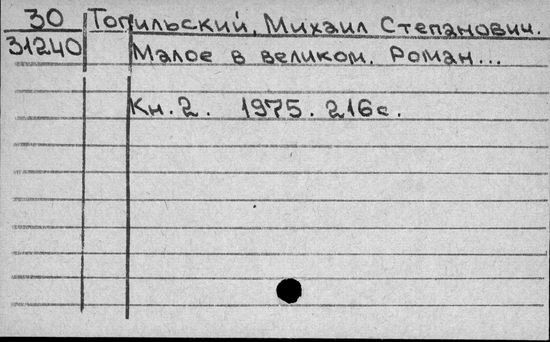 30 Топильский, Михаил Степанович.
31240 Малое в великом. Роман...
Кн. 2. 1975. 216с.